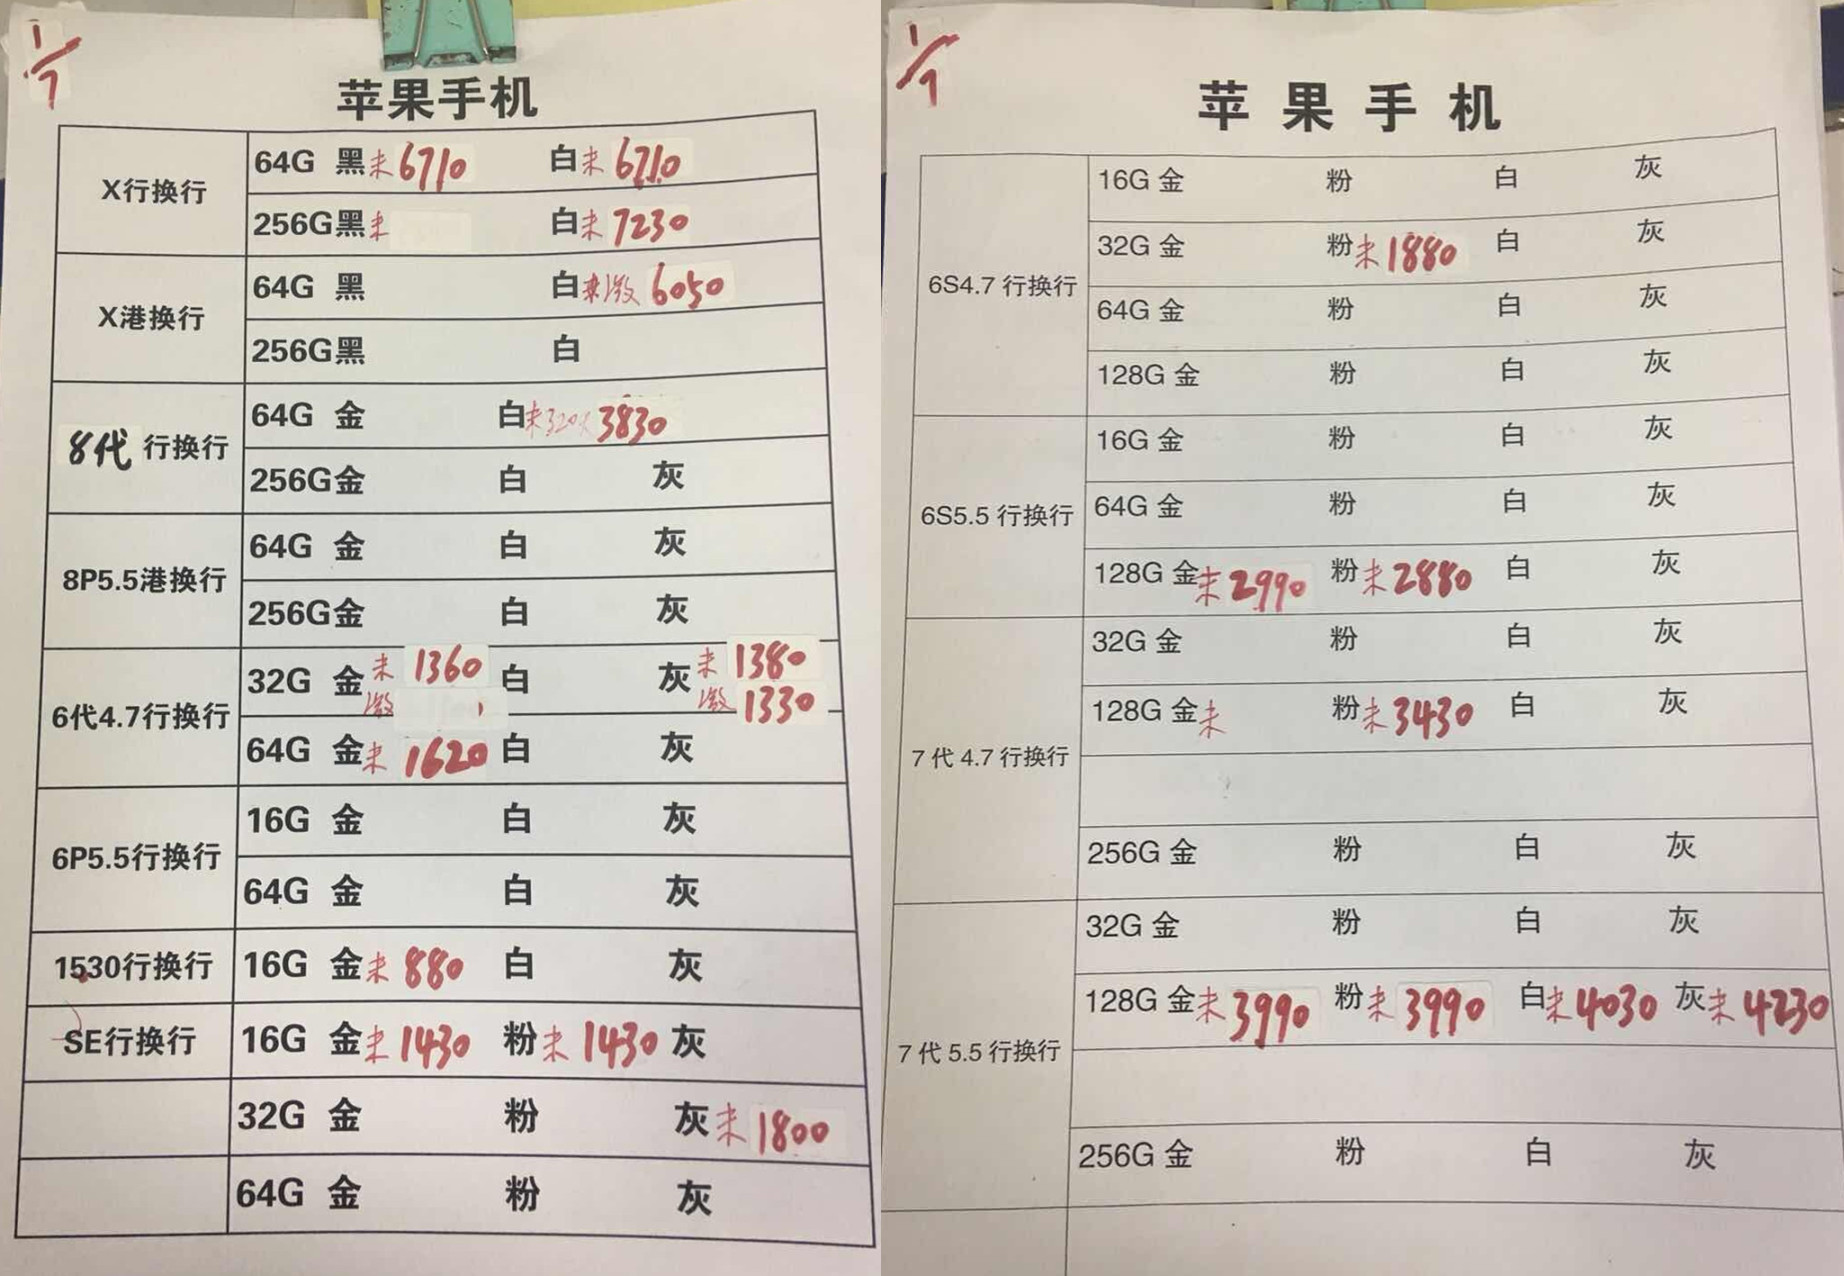 1/7
苹果手机
X行换行
64G 黑未6710 白未6710
256G黑未 白未7230
X港换行
64G 黑 白未激6050
256G黑 白
8代 行换行
64G 金 白未 3830
256G金 白 灰
8P5.5港换行
64G 金 白 灰
256G金 白 灰
6代4.7行换行
32G 金未1360 白 灰未1380
激 激1330
64G 金未1620 白 灰
6P5.5行换行
16G 金 白 灰
64G 金 白 灰
1530行换行
16G 金未880 白 灰
SE行换行
16G 金未1430 粉未1430 灰
32G 金 粉 灰未1800
64G 金 粉 灰
1/7
苹果手机
6S4.7行换行
16G 金 粉 白 灰
32G 金 粉未1880 白 灰
64G 金 粉 白 灰
128G 金 粉 白 灰
6S5.5行换行
16G 金 粉 白 灰
64G 金 粉 白 灰
128G 金未2990 粉未2880 白 灰
7代4.7行换行
32G 金 粉 白 灰
128G 金未 粉未3430 白 灰
256G 金 粉 白 灰
7代5.5行换行
32G 金 粉 白 灰
128G 金未3990 粉未3990 白未4030 灰未4230
256G 金 粉 白 灰